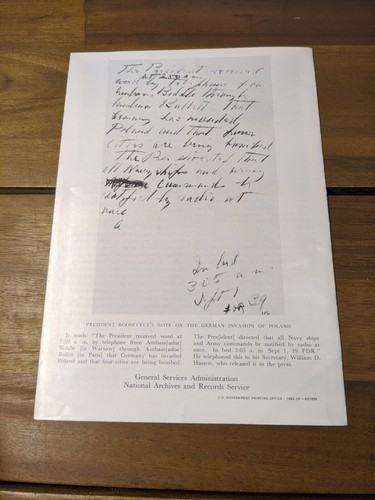 The President received
at 2:50 a.m.
word by telephone from
Ambass. Biddle through
Ambass. Bullitt that
Germany has invaded
Poland and that four
cities are being bombed
The Pres. directed that
all Navy ships and army
commands be
notified by radio at
once
In bed
3:05 a.m.
Sept 1
39
PRESIDENT ROOSEVELT'S NOTE ON THE GERMAN INVASION OF POLAND
It reads: "The President received word at
2:50 a.m. by telephone from Ambas[ador]
Biddle [in Warsaw] through Ambas[ador]
Bullitt (in Paris) that Germany has invaded
Poland and that four cities are being bombed.
The Pres[ident] directed that all Navy ships
and Army commands be notified by radio at
once. In bed 3:05 a.m. Sept. 1, 39 FDR."
He telephoned this to his Secretary, William D.
Hassett, who released it to the press.
General Services Administration
National Archives and Records Service
U.S. GOVERNMENT PRINTING OFFICE